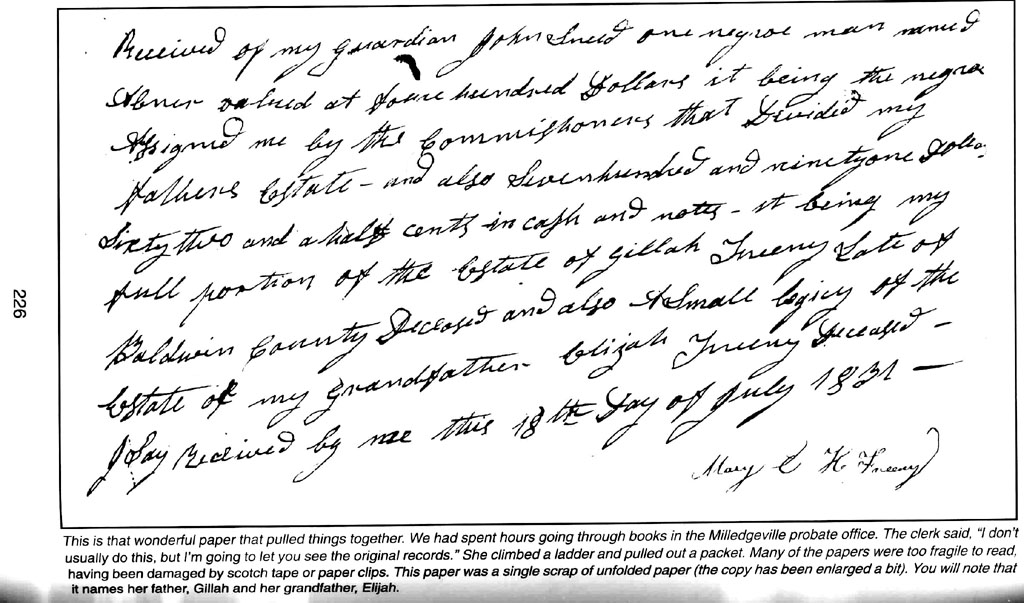 Received of my guardian John Sneed one negroe man named
Abner valued at foure hundred Dollars it being the negroe
Assigned me by the Commissioners that Devided my
fathers Estate - and also Sevenhundred and ninetyone Dolla
Sixty two and a half cents in cash and notes - it being my
full portion of the Estate of Gillah Freeny Late of
Baldwin County Deceased and also A Small legicy of the
Estate of my Grandfather Elijah Freeny Deceased -
I Say Received by me this 18th Day of July 1831 -
Mary E H Freeny
226
This is that wonderful paper that pulled things together. We had spent hours going through books in the Milledgeville probate office. The clerk said, "I don't
usually do this, but I'm going to let you see the original records." She climbed a ladder and pulled out a packet. Many of the papers were too fragile to read,
having been damaged by scotch tape or paper clips. This paper was a single scrap of unfolded paper (the copy has been enlarged a bit). You will note that
it names her father, Gillah and her grandfather, Elijah.